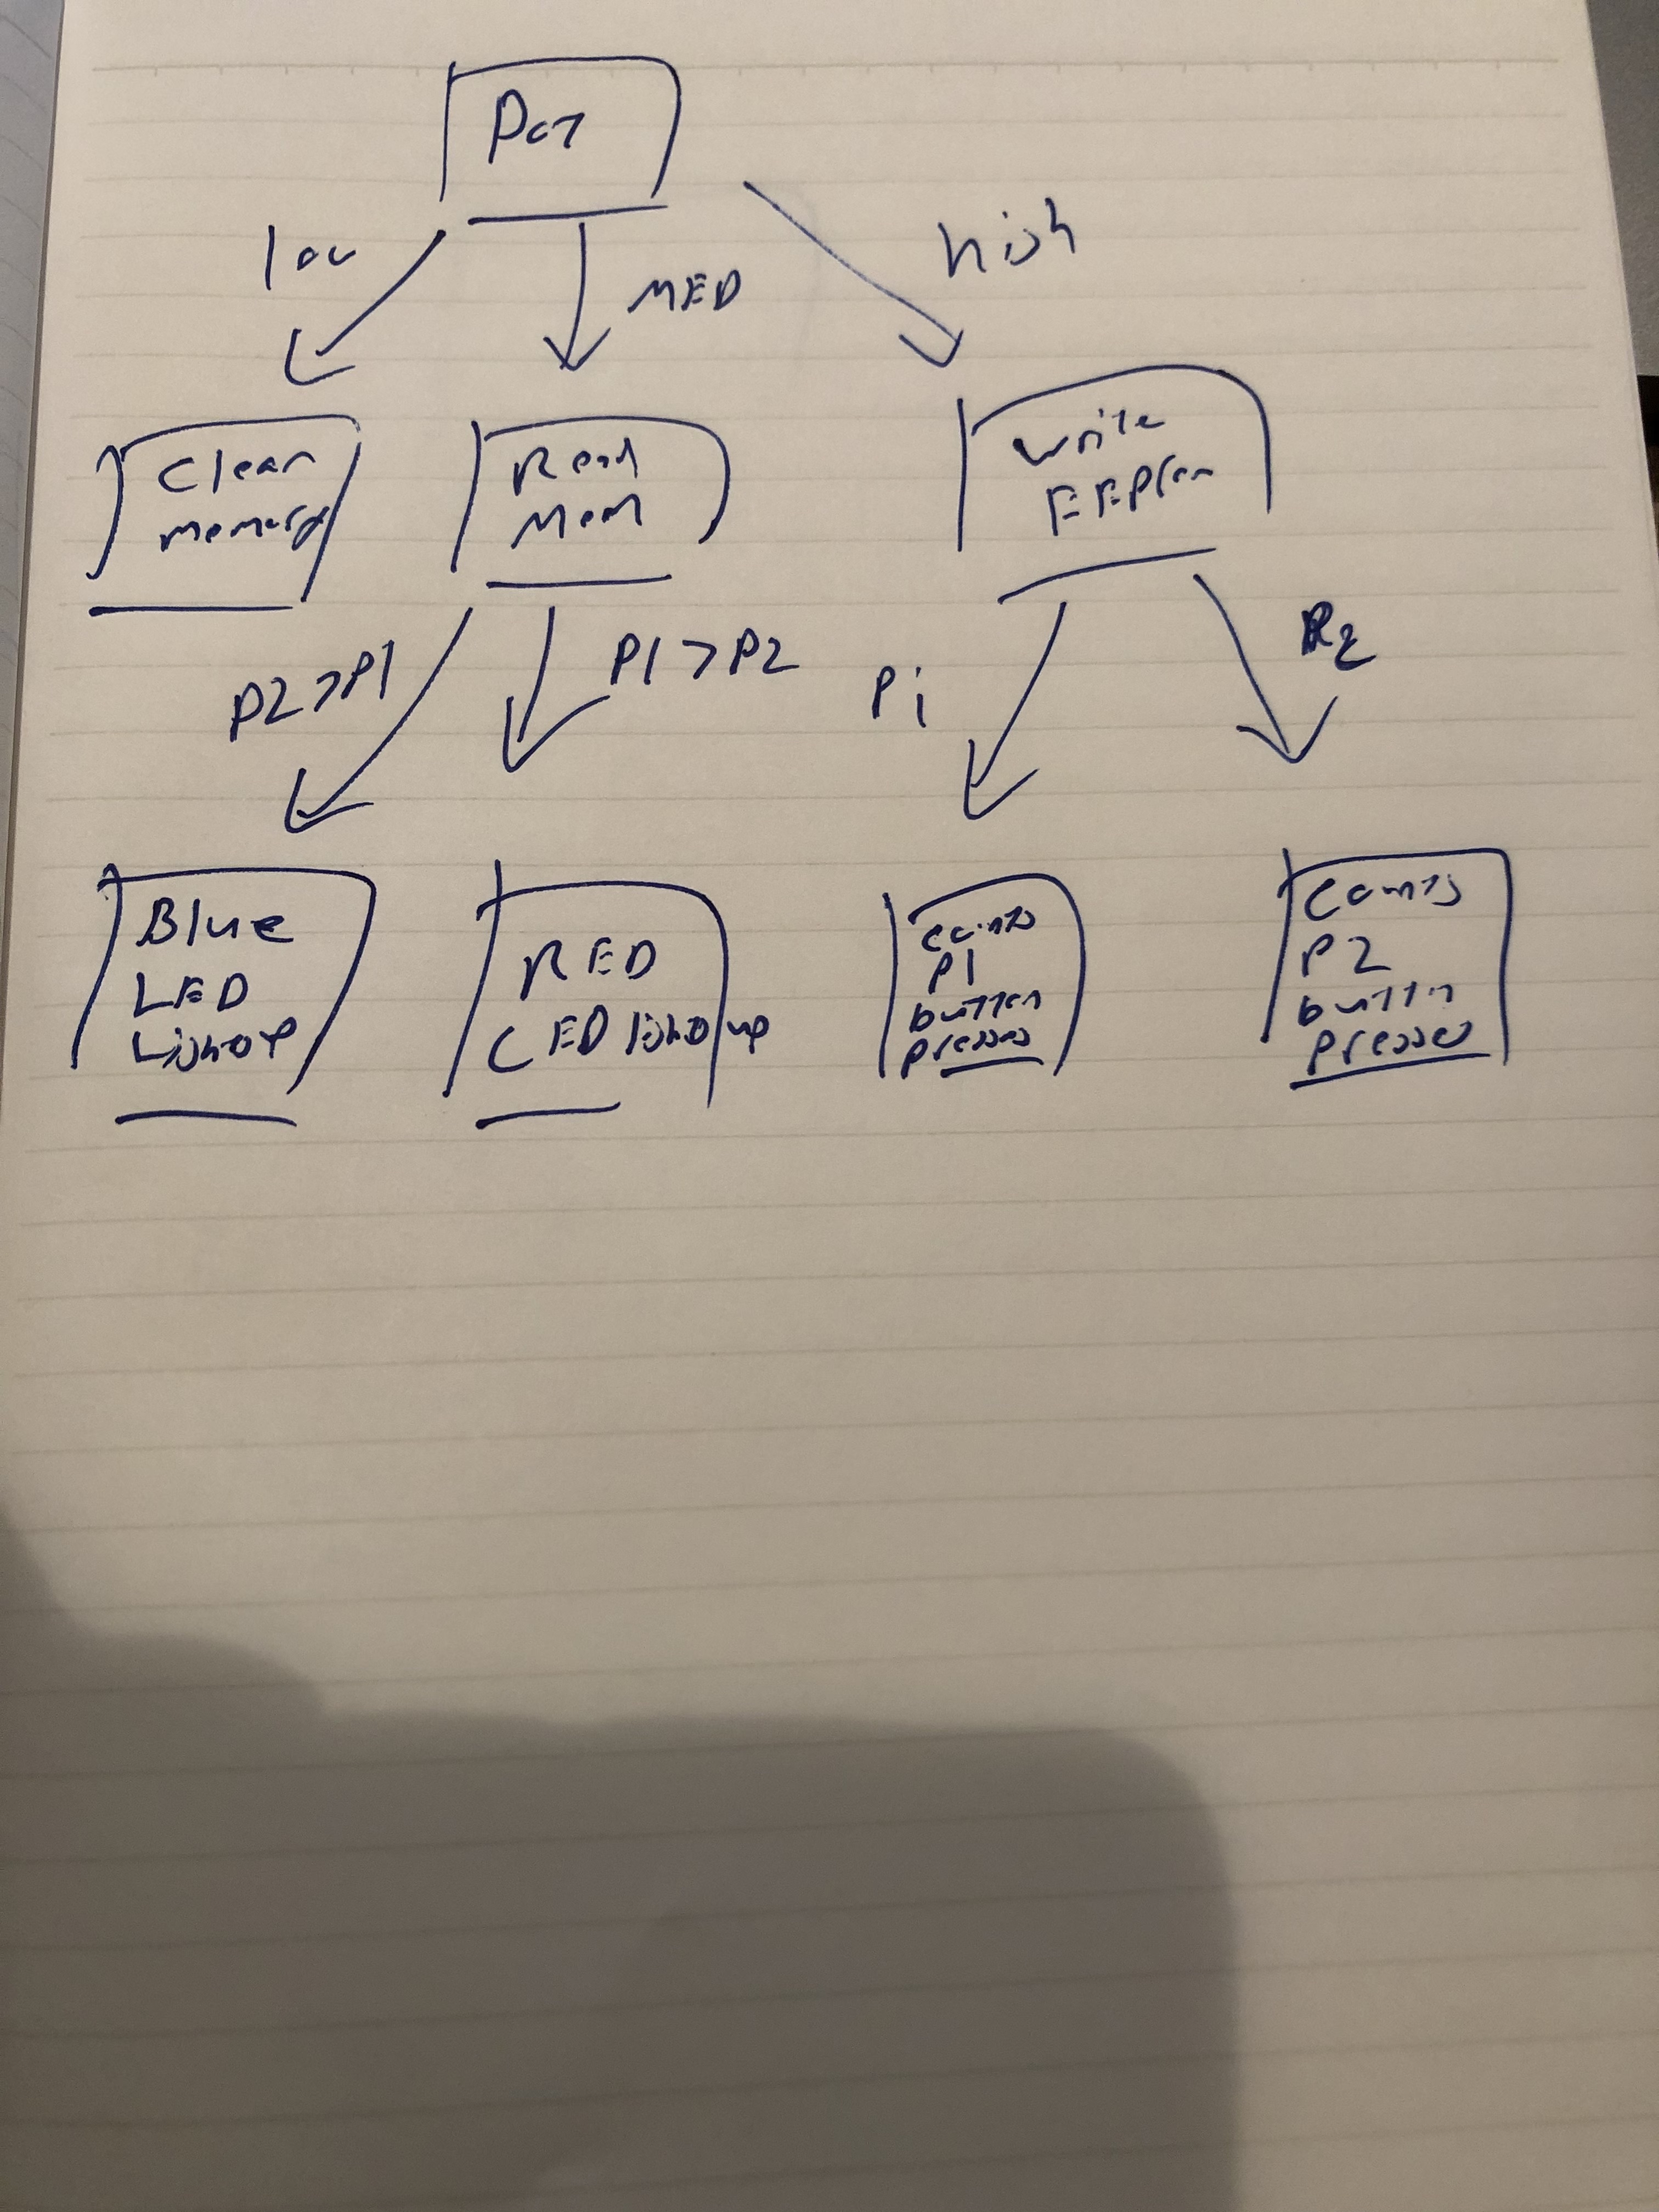 Pot
low
MED
high
Clear
memory
Read
Mem
write
EEprom
P2>P1
P1>P2
P1
P2
Blue
LED
Light up
RED
LED light up
counts
P1
button
presses
counts
P2
button
presses